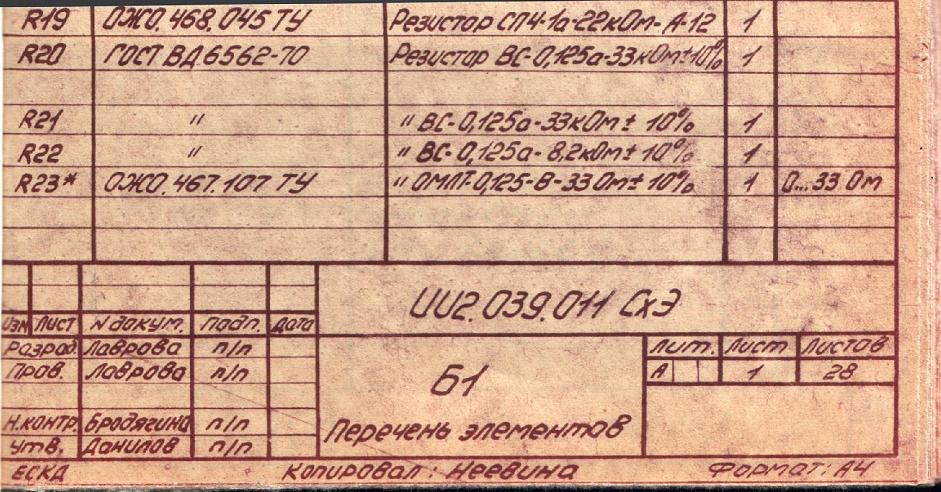 R19 ОЖО.468.045 ТУ Резистор СП4-1а-22кОм-А-12 1
R20 ГОСТ ВД.6562-70 Резистор ВС-0,125а-33кОм±10% 1
R21 " " ВС-0,125а-33кОм± 10% 1
R22 " " ВС-0,125а-8,2кОм± 10% 1
R23* ОЖО.467.107 ТУ " ОМЛТ-0,125-В-33 Ом± 10% 1 0...33 Ом
ЦИ2.039.011 СхЭ
Изм Лист N докум. Подп. Дата
Разраб. Лаврова п/п
Пров. Лаврова п/п
Н.контр. Бродягина п/п
Утв. Данилов п/п
Б1
Перечень элементов
Лит. Лист Листов
А 1 28
ЕСКД Копировал: Неевина Формат: А4